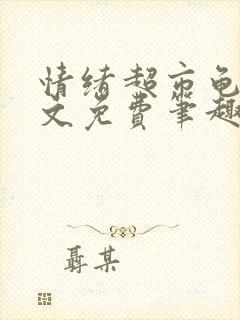 情绪超市龟
文免费笔趣
聂某